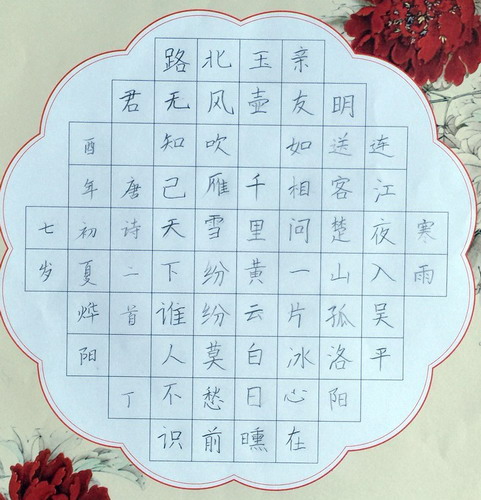 寒雨
连江夜入吴平
明送客楚山孤洛阳
亲友如相问一片冰心在
玉壶 千里黄云白日曛
北风吹雁雪纷纷莫愁前
路无知己天下谁人不识
君 唐诗二首 丁
酉年初夏烨阳
七岁